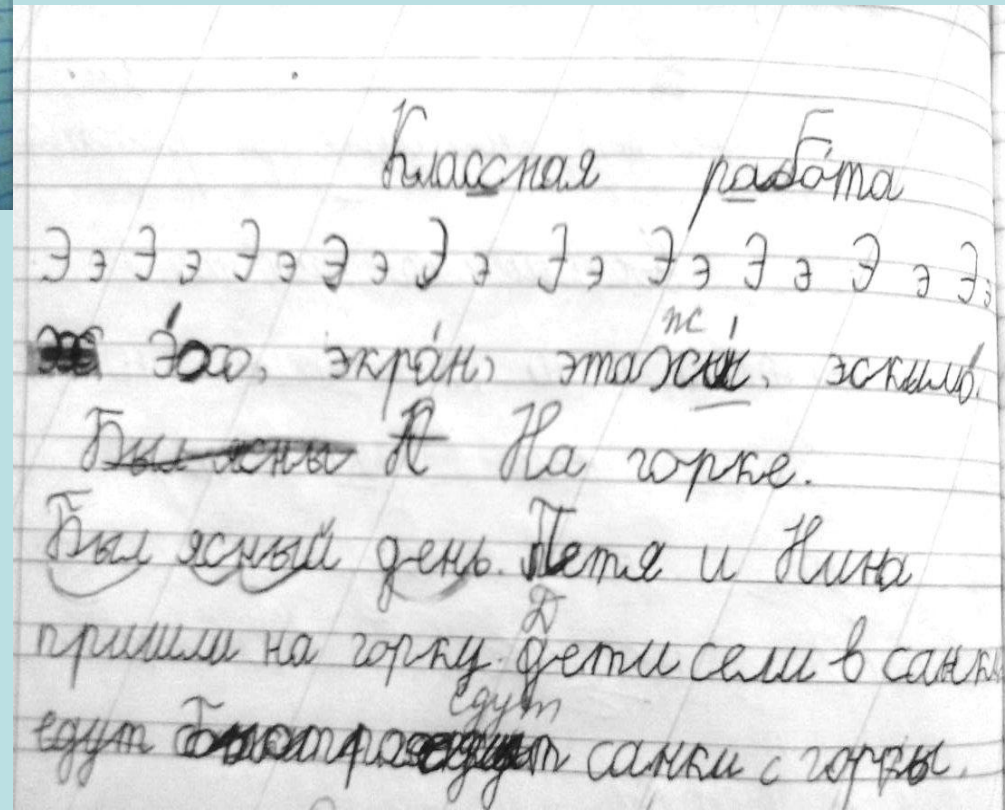 Классная работа
Э э Э э Э э Э э Э э Э э Э э Э э Э э Э э
Эхо, экран, этажи, эскимо.
Был ясны Н На горке.
Был ясный день. Петя и Нина
пришли на горку. Дети сели в санки
едут быстро едут санки с горы.